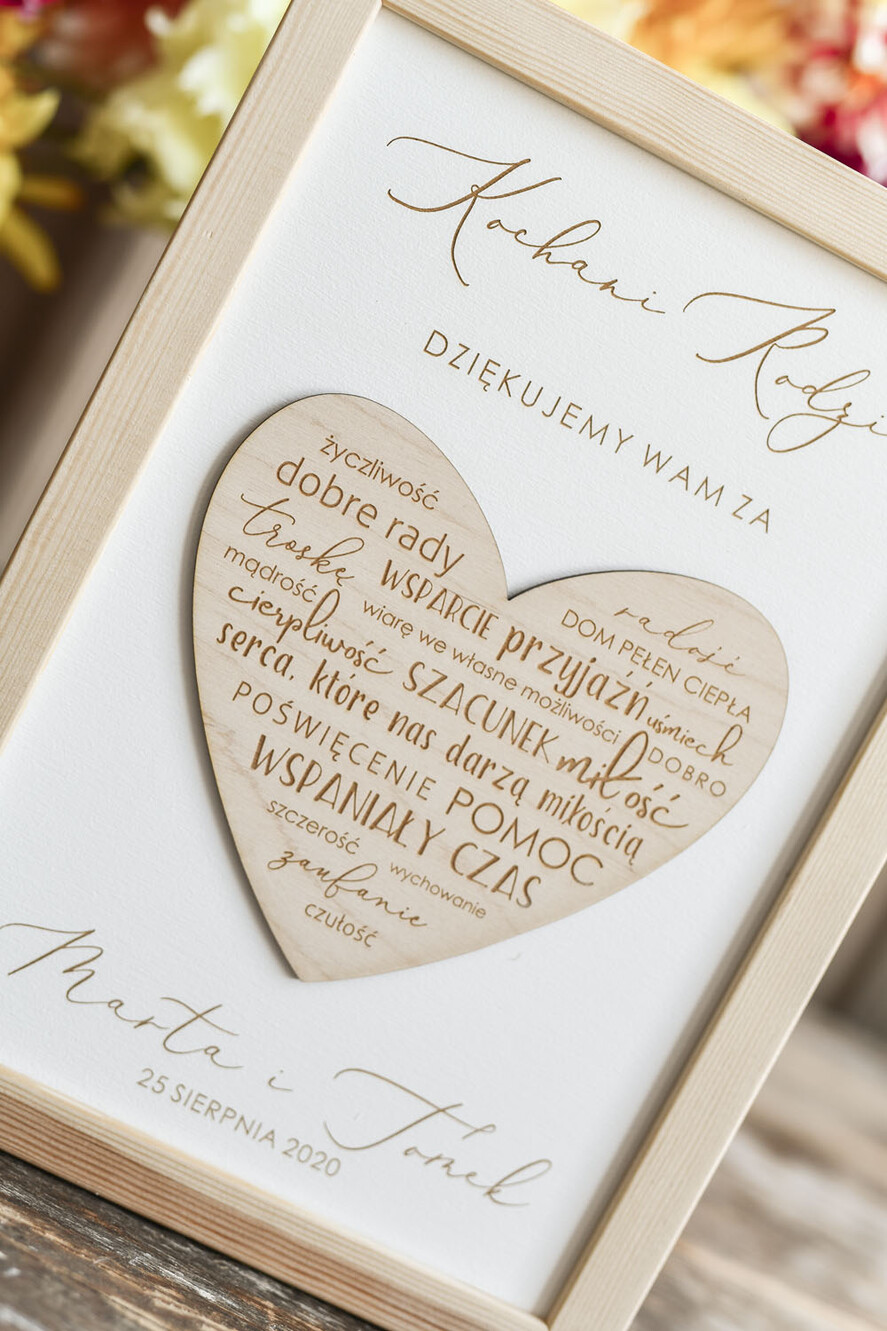 Kochani Rodzi
DZIĘKUJEMY WAM ZA
życzliwość
dobre rady
troskę WSPARCIE przyjaźń uśmiech
radość
DOM PEŁEN CIEPŁA
mądrość wiarę we własne możliwości DOBRO
cierpliwość SZACUNEK miłość
serca, które nas darzą miłością
POŚWIĘCENIE POMOC
WSPANIAŁY CZAS
szczerość wychowanie
zaufanie
czułość
Marta i Tomek
25 SIERPNIA 2020